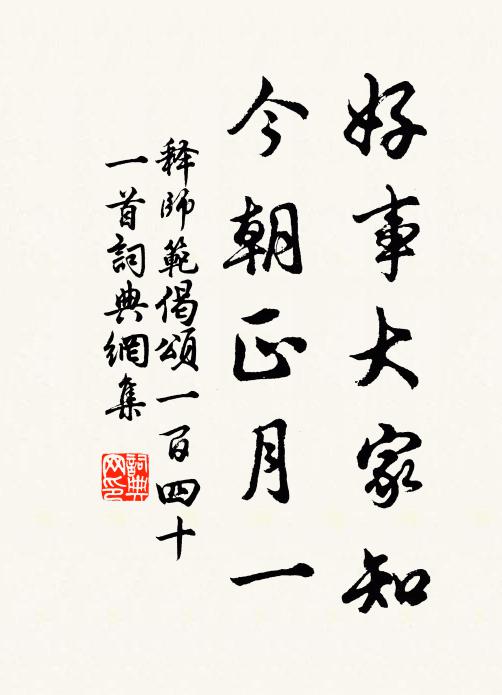 好事大家知
今朝正月一
释師範偈頌一百四十
一首詞典網集
詞典
网印